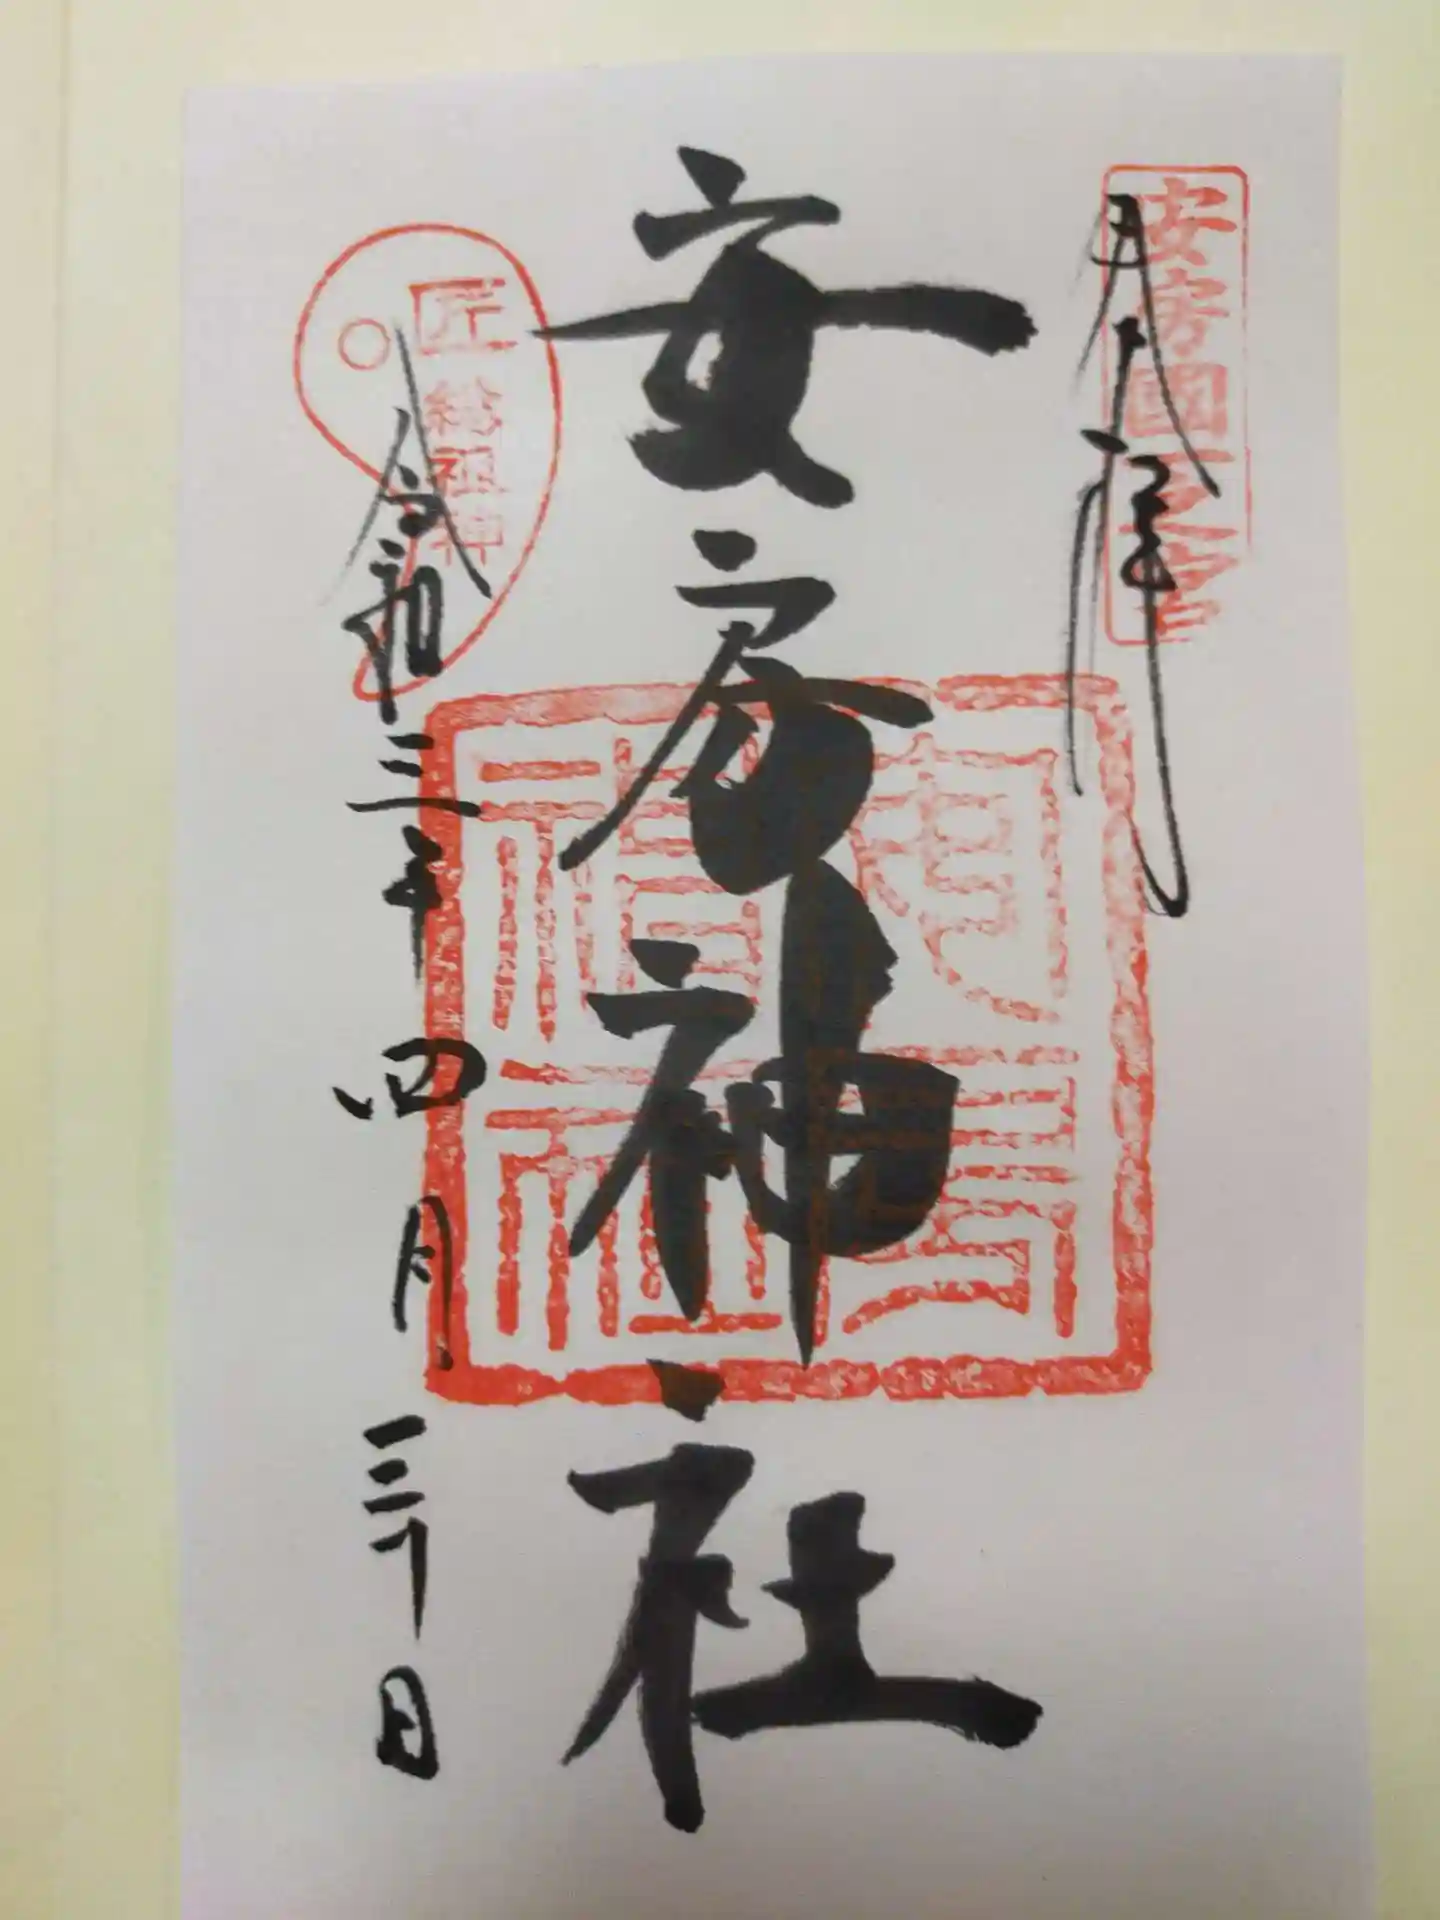 奉拝
安房國一之宮
安房神社
安房神社
匠総祖神
令和三年四月三十日